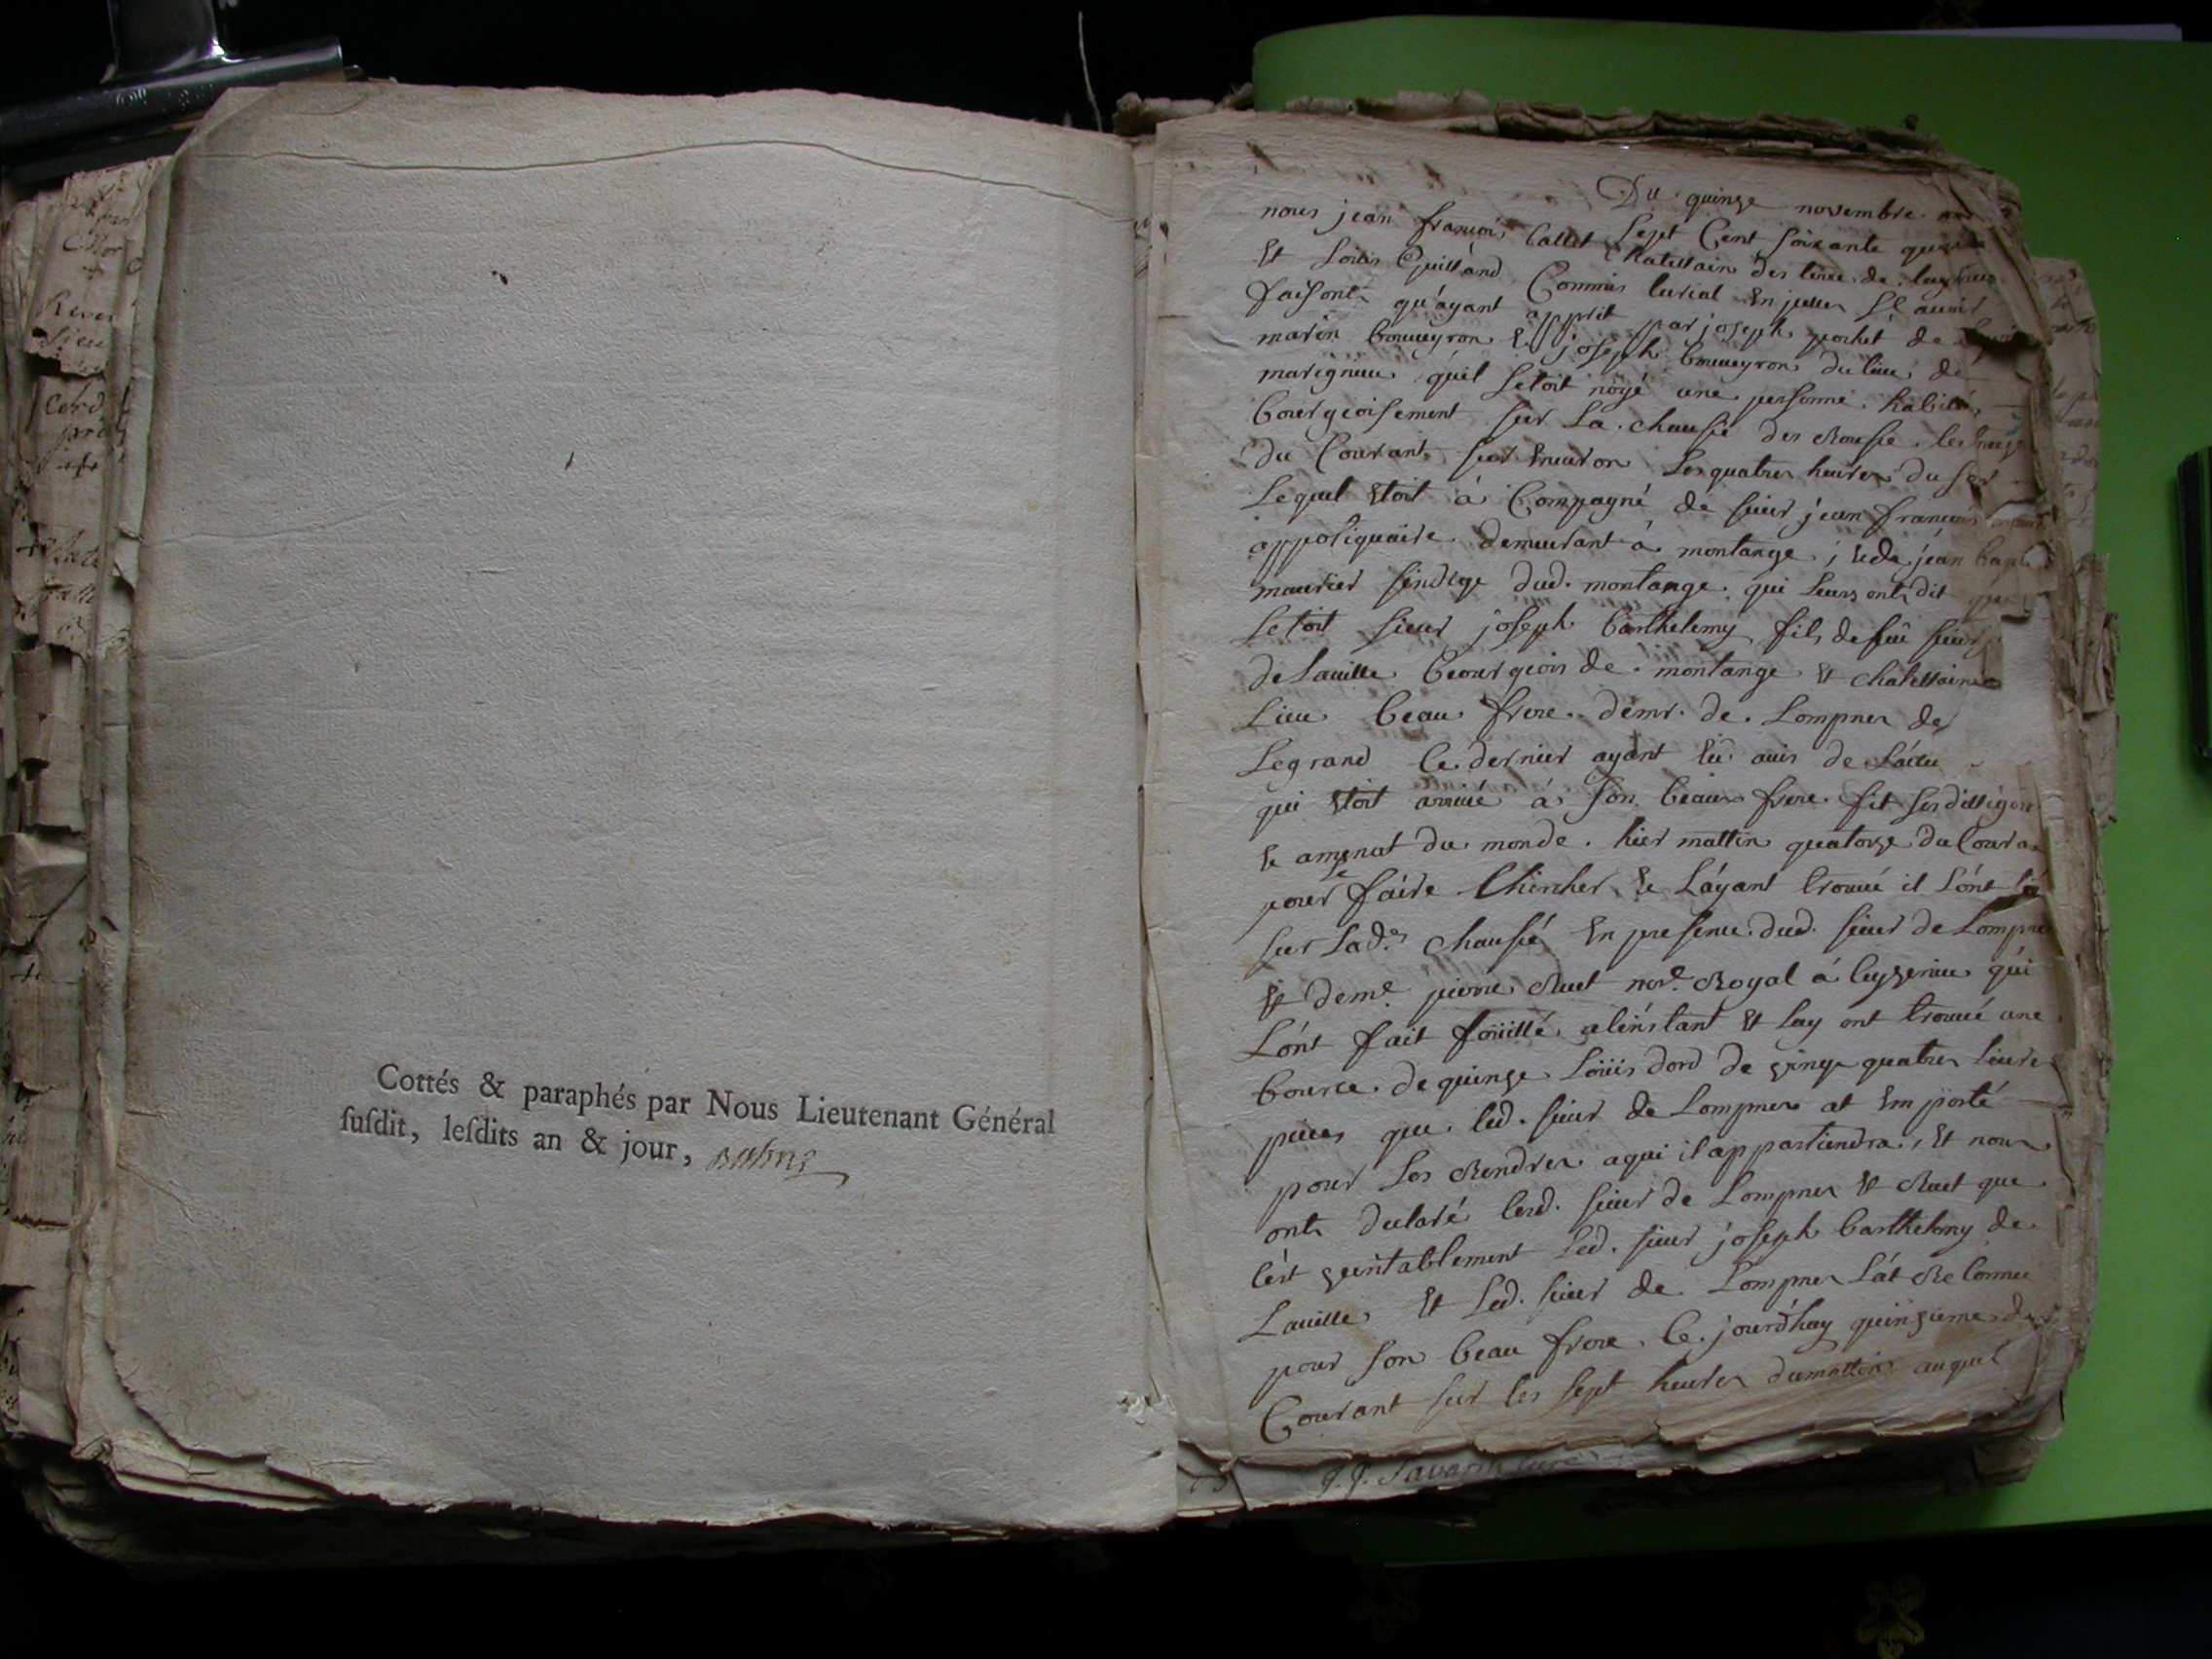 Cottés & paraphés par Nous Lieutenant Général
ſuſdit, leſdits an & jour,
Du quinze novembre
nous jean francois Callet sept Cent soixante
Et Loüis Guilland Chatellain des terre de
faisont qu'ayant Commis Curial En jcelles Sçauoir
apprit par joseph pochet de
marin bouueyron & joseph bouueyron du lieu de
marignieu qu'il setoit noyé une personne habilé
bourgeoisement sur La chausée des Rousse le
du Courant sur Enuiron Les quatres heures du soir
Lequel Etoit a Compagné de sieur jean francois
appotiquaire demeurant à montange, & de jean bapt
maurier sindige dud. montange qui Leurs ont dit que
setoit sieur joseph barthelemy fils de feû sieur
de Lauille bourgeois de montange Et chatellain
Lieu beau frere demr. de Lompnes de
Legrand Ce dernier ayant Eü auis de
qui Etoit arriué à son beau frere fit ses dilligen
& amenat du monde hier mattin quatorze du Coura
pour Le faire Chercher & L'áyant trouué il L'ónt
sur Lad.e chausée En presence dud. sieur de Lompne
Et dem.e pierre Ruet nor.e Royal á Ceyzerieu qúi
L'ónt fait foüillé a l'instant Et Luy ont trouué une
bource de quinze Loüis dord de vingt quatres Liures
pieces que led. sieur de Lompnes at Emporté
pour Les Rendres a qui il appartiendra, Et nous
onts declaré lesd. sieur de Lompnes & Ruet que
c'ést veritablement Led. sieur joseph barthelemy de
Lauille Et Led. sieur de Lompnes L'át Reconnu
pour son beau frere Ce jourd'huy quinzieme du
Courant sur les sept heures du mattin auquel
J. J. Savarin curé